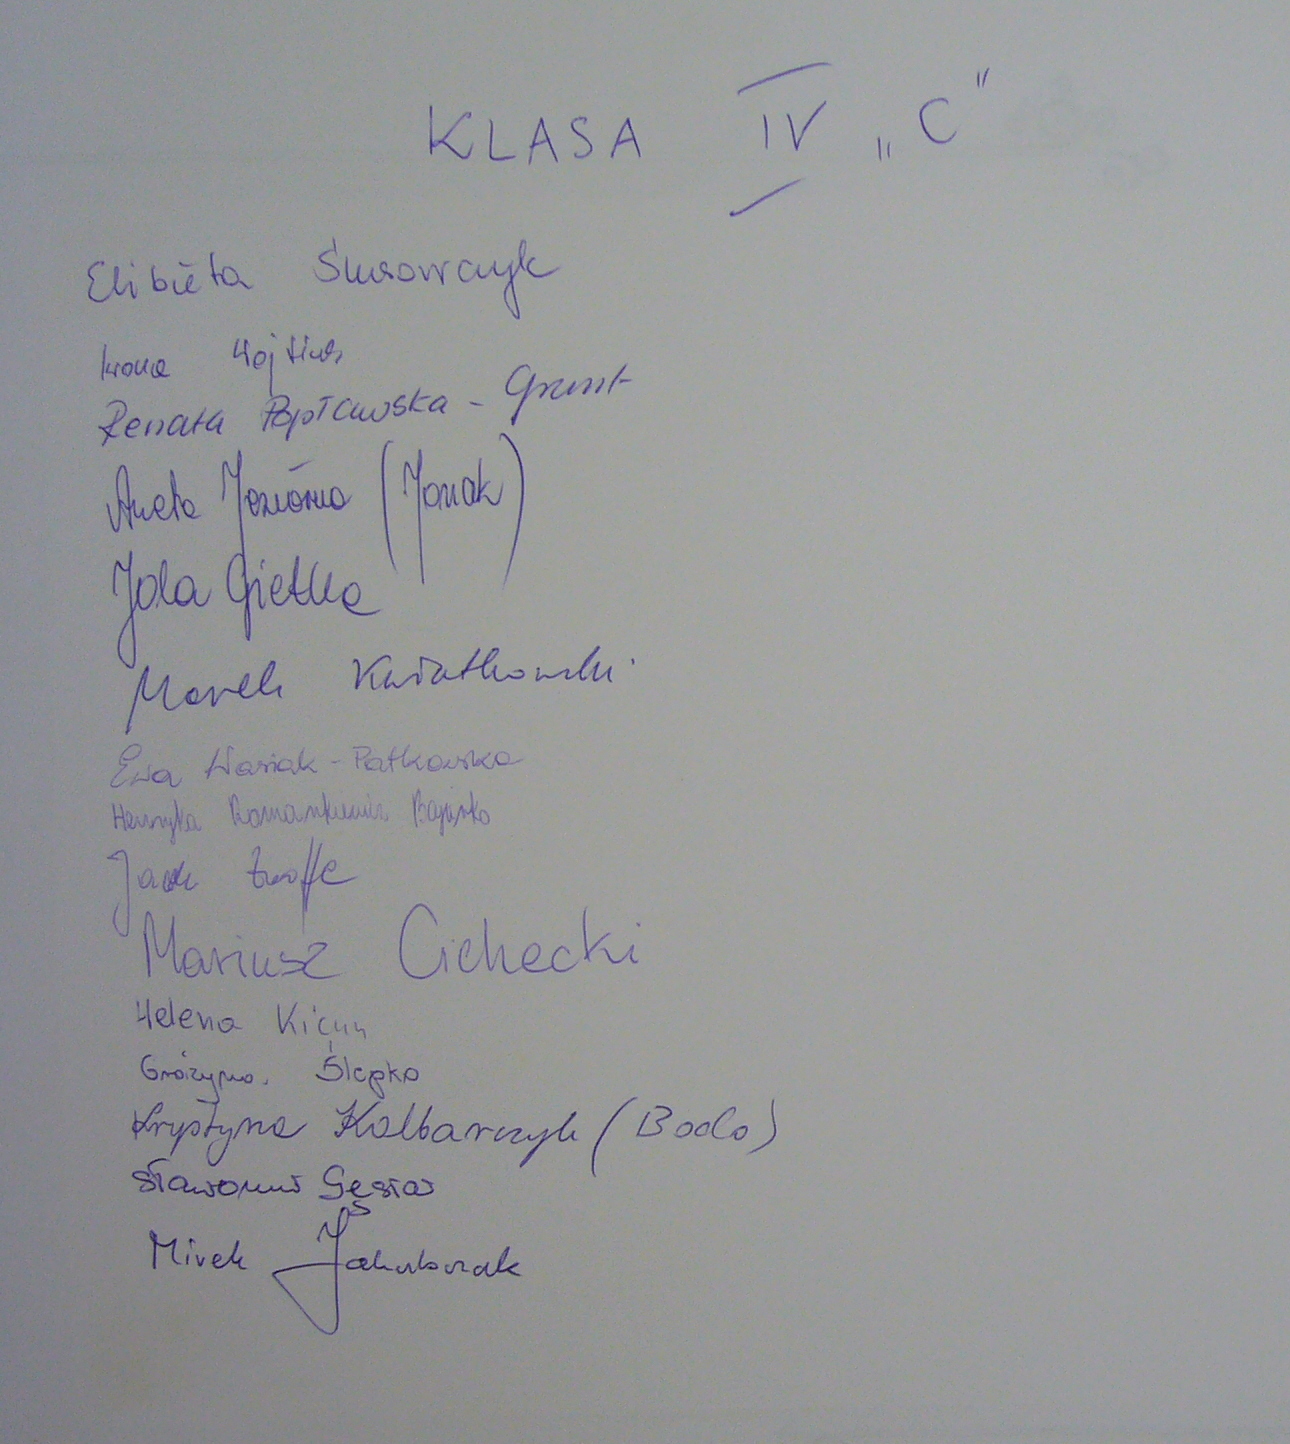 KLASA IV „C"
Elżbieta
Iwona
Renata Popławska - Grunt
Aneta Jaworna (Jonak)
Jola Gietka
Marek Kwiatkowski
Ewa Wasiak - Patkowska
Henryka Romankiewicz
Jacek
Mariusz Cichecki
Helena Kicun
Grażyna. Ślepko
Krystyna Kolbarczyk (Bodo)
Sławomir Gęsiaż
Mirek Jakubczak